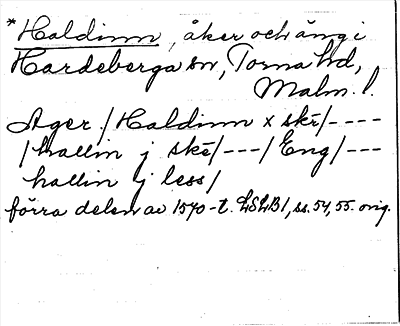 *Haldinn, åker och äng i
Hardeberga sn, Torna hd,
Malm. l.
Ager./Haldinn x ske/----
/hallin j ske/---/Eng/---
hallin j less/
förra delen av 1570-t. LSLB1, ss. 54, 55. orig.